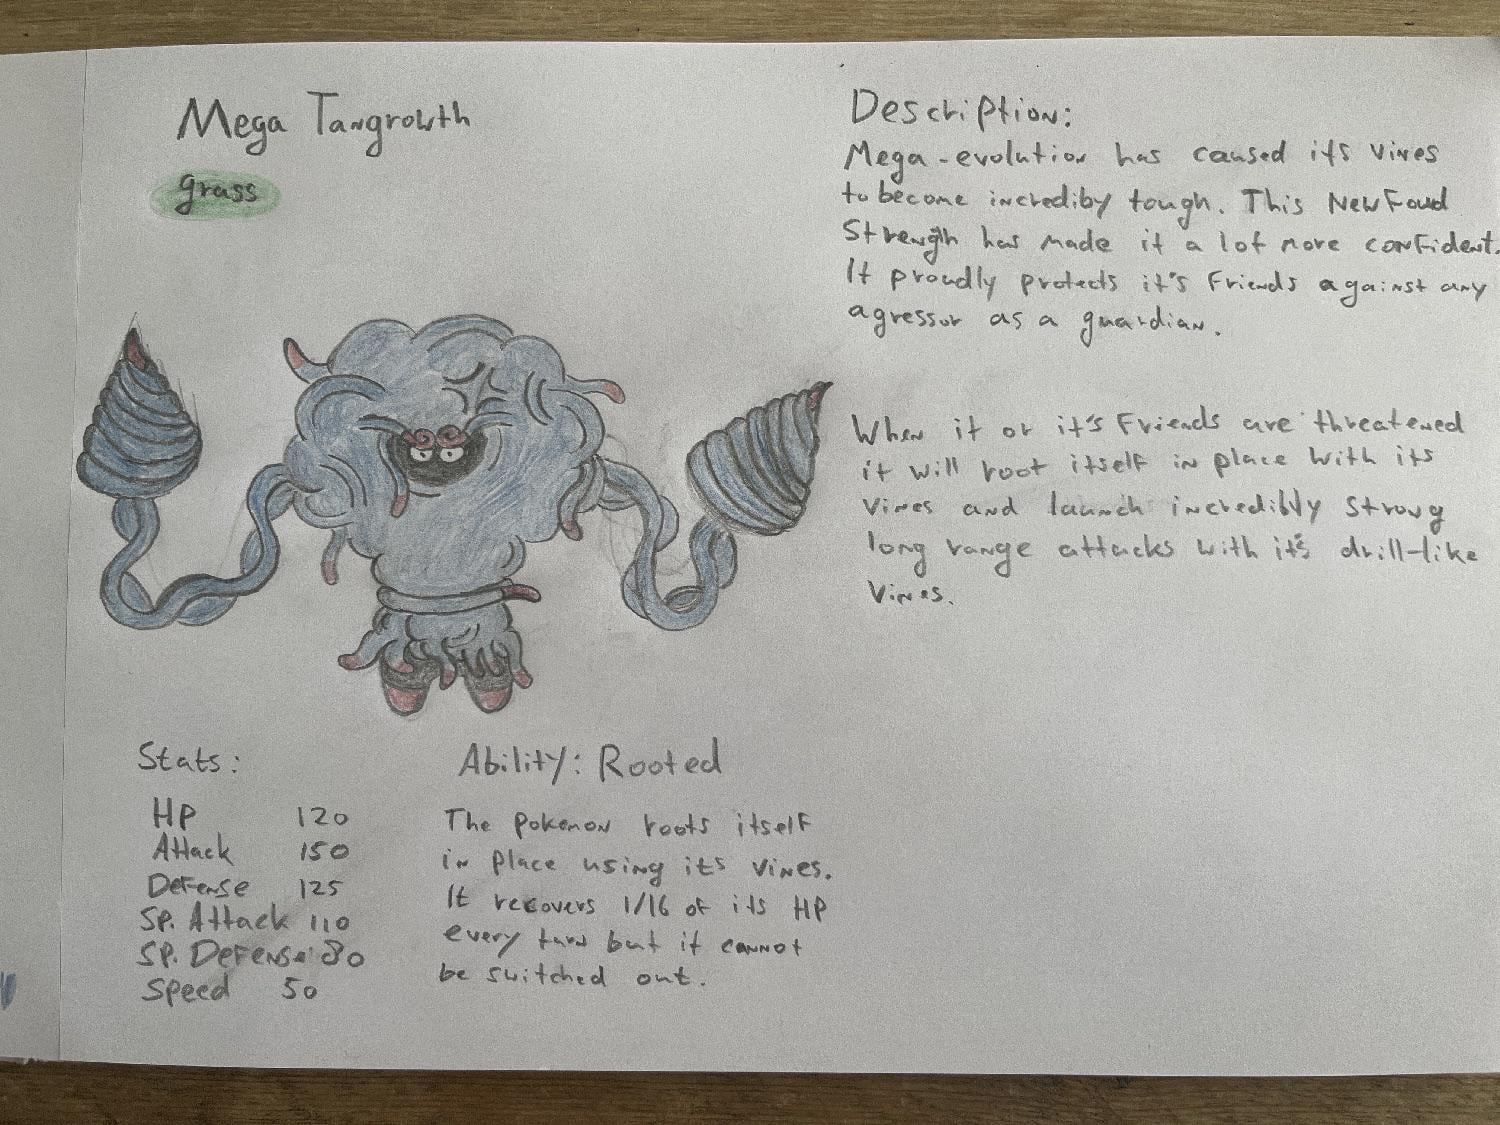 Mega Tangrowth
grass
Description:
Mega-evolution has caused its vines
to become incrediby tough. This Newfoud
Strength has made it a lot more confident.
It proudly protects it's Friends against any
agressor as a guardian.
When it or it's Friends are threatened
it will root itself in place with its
vines and launch incredibly strong
long range attacks with it's drill-like
vines.
Stats:
HP 120
Attack 150
Defense 125
SP. Attack 110
SP. Defense 80
Speed 50
Ability: Rooted
The Pokemon roots itself
in place using its vines.
It recovers 1/16 of its HP
every turn but it cannot
be switched out.